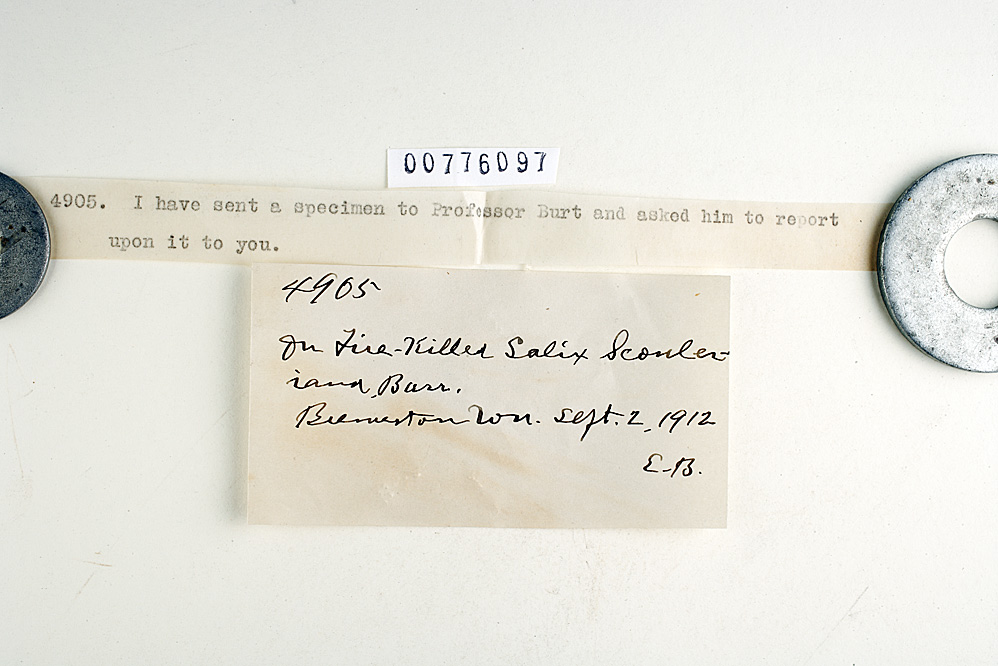 00776097
4905. I have sent a specimen to Professor Burt and asked him to report
upon it to you.
4905
On Fire-Killed Salix Scouler-
iana, Barr.
Bremerton Wn. Sept. 2, 1912
E.B.